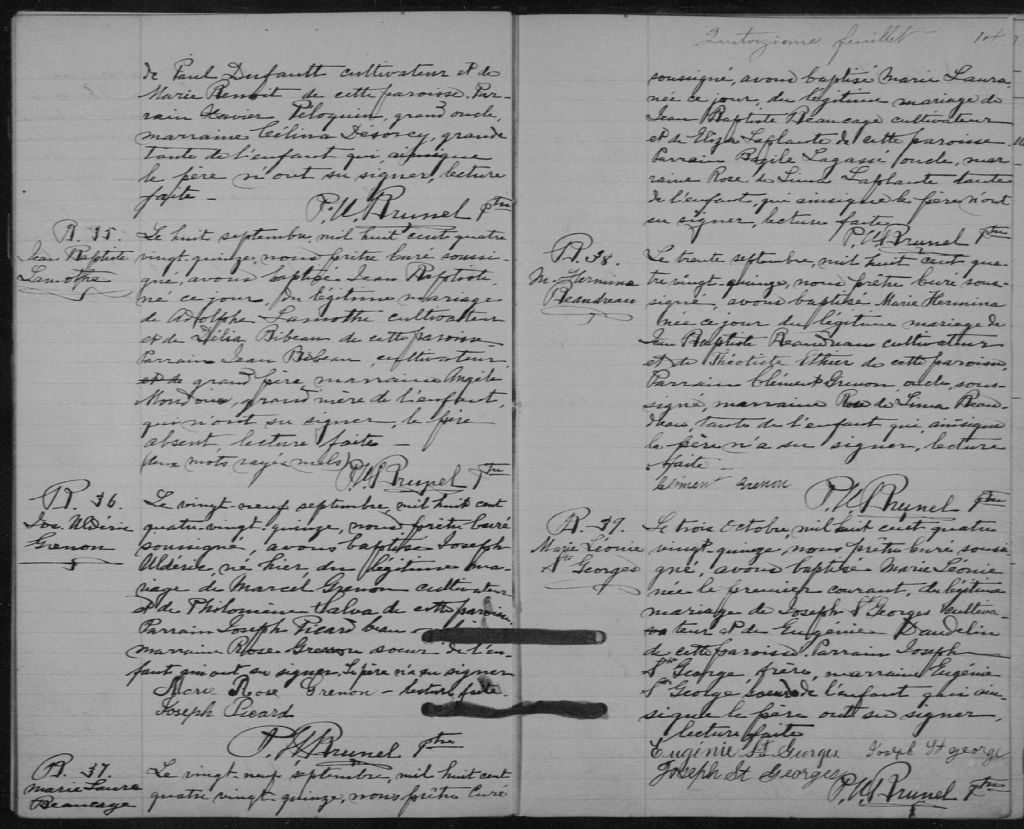 de Paul Dufault cultivateur et de
Marie Benoit de cette paroisse. Par-
rain Xavier Péloquin, grand oncle,
marraine Célina Desorcy, grande
tante de l'enfant qui ainsi que
le père n'ont su signer, lecture
faite –
P.U. Brunel Ptre
B. 35.
Jean Baptiste
Lamothe
Le huit septembre, mil huit cent quatre
vingt quinze, nous prêtre curé soussi-
gné, avons baptisé Jean Baptiste,
né ce jour, du légitime mariage
de Adolphe Lamothe cultivateur
et de Délia Bibeau de cette paroisse
Parrain Jean Bibeau, cultivateur
et de grand père marraine Angèle
grand mère de l'enfant,
qui n'ont su signer, le père
absent, lecture faite –
(deux mots rayés nuls)
P.U. Brunel Ptre
B. 36.
Jos. Uldéric
Grenon
Le vingt neuf septembre, mil huit cent
quatre vingt quinze, nous prêtre curé
soussigné, avons baptisé Joseph
Uldéric né hier du légitime ma-
riage de Marcel Grenon cultivateur
et de Philomène Salva de cette paroisse
Parrain Joseph Picard beau
marraine Rose Grenon soeur de l'en-
fant qui ont su signer, le père n'a su signer
Marie Rose Grenon – lecture faite.
Joseph Picard
P.U. Brunel Ptre
B. 37.
Marie Laura
Beaucage
Le vingt neuf septembre, mil huit cent
quatre vingt quinze, nous prêtre curé
Quatorzième feuillet
soussigné, avons baptisé Marie Laura
née ce jour, du légitime mariage de
Jean Baptiste Beaucage cultivateur
et de Eliza Laplante de cette paroisse
Parrain Bazile Lagassé oncle, mar-
raine Rose de Lima Laplante tante
de l'enfant, qui ainsi que le père n'ont
su signer, lecture faite
P.U. Brunel Ptre
B. 38.
M. Hermina
Beaudreau
Le trente septembre, mil huit cent qua-
tre vingt quinze, nous prêtre curé sous-
signé, avons baptisé Marie Hermina
née ce jour du légitime mariage de
Jean Baptiste Beaudreau cultivateur
et de Théotiste Ethier de cette paroisse,
Parrain Clément Grenon, oncle, sous-
signé, marraine Rose de Lima Beau-
dreau tante de l'enfant qui ainsi que
le père n'a su signer, lecture
faite
Clément Grenon
P.U. Brunel Ptre
B. 39.
Marie Léonie
St Georges
Le trois Octobre, mil huit cent quatre
vingt quinze, nous prêtre curé soussi-
gné, avons baptisé Marie Léonie
née le premier courant, du légitime
mariage de Joseph St Georges cultiva-
teur et de Eugénie Dandelin
de cette paroisse. Parrain Joseph
St George, frère, marraine Eugénie
St George, soeur de l'enfant qui ain-
si que le père ont su signer,
lecture faite
Eugénie St Georges Joseph St george
Joseph St Georges
P.U. Brunel Ptre